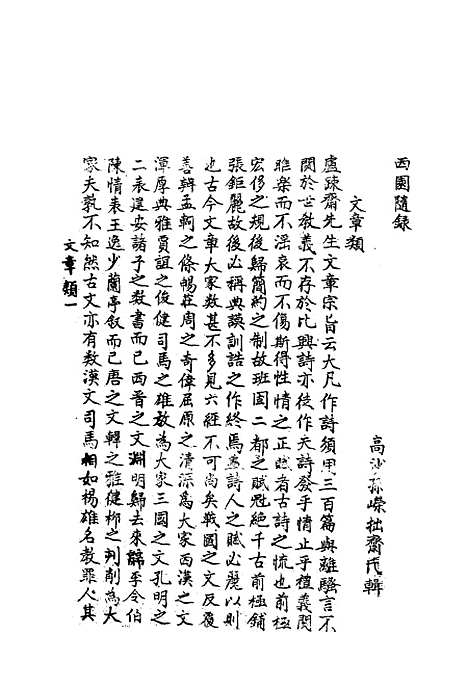 西園隨錄
高沙孫嶸拙齋氏輯
文章類
盧疎齋先生文章宗旨云大凡作詩須用三百篇與離騷言不
関於世教義不存於比興詩亦徒作夫詩發乎情止乎禮義関
雎樂而不淫哀而不傷斯得性情之正賦者古詩之流也前極
宏侈之規後歸簡約之制故班固二都之賦冠絕千古前極鋪
張鉅麗故後必稱典謨訓誥之作終焉蓋詩人之賦必麗以則
也古今文章大家数甚不多見六經不可尚矣戰國之文反覆
善辨孟軻之條暢莊周之奇偉屈原之清深為大家西漢之文
渾厚典雅賈誼之俊健司馬之雄放為大家三國之文孔明之
二表建安諸子之数書而已西晋之文淵明歸去來辭李令伯
陳情表王逸少蘭亭叙而已唐之文韓之雅健柳之刋削為大
家夫孰不知然古文亦有数漢文司馬相如楊雄名教罪人其
文章類一